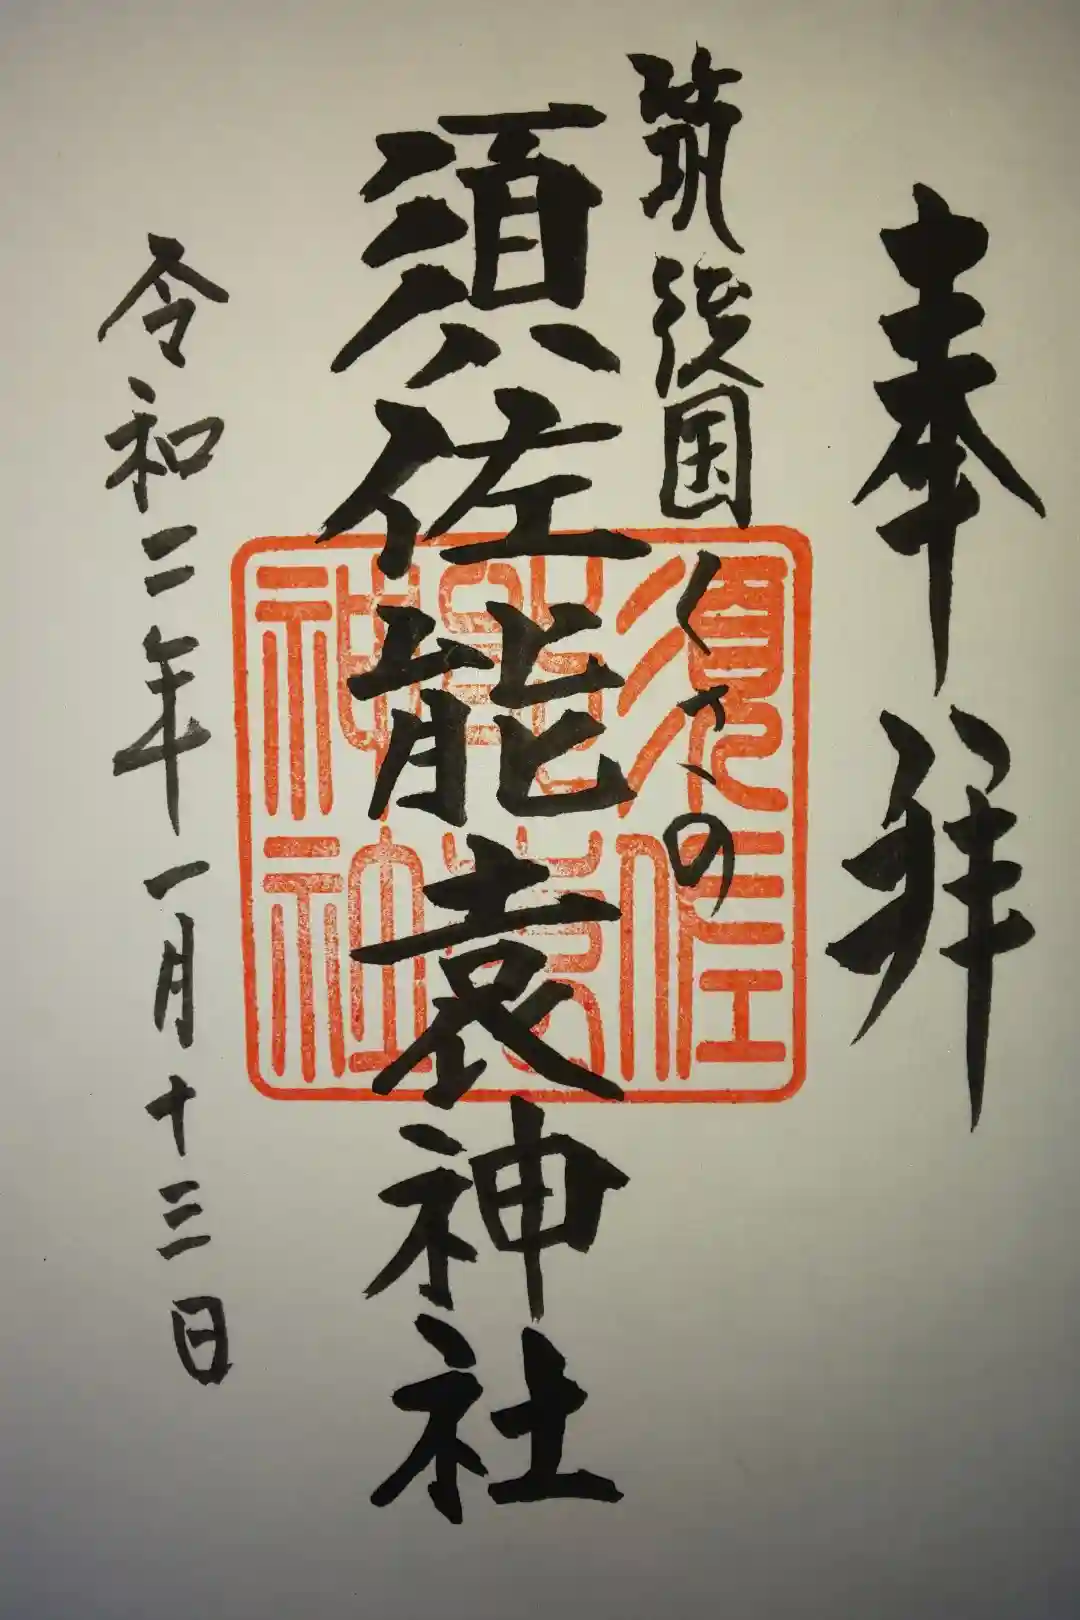 奉拝
筑後国くさの
須佐能袁神社
須佐
能袁
神社
令和二年一月十三日